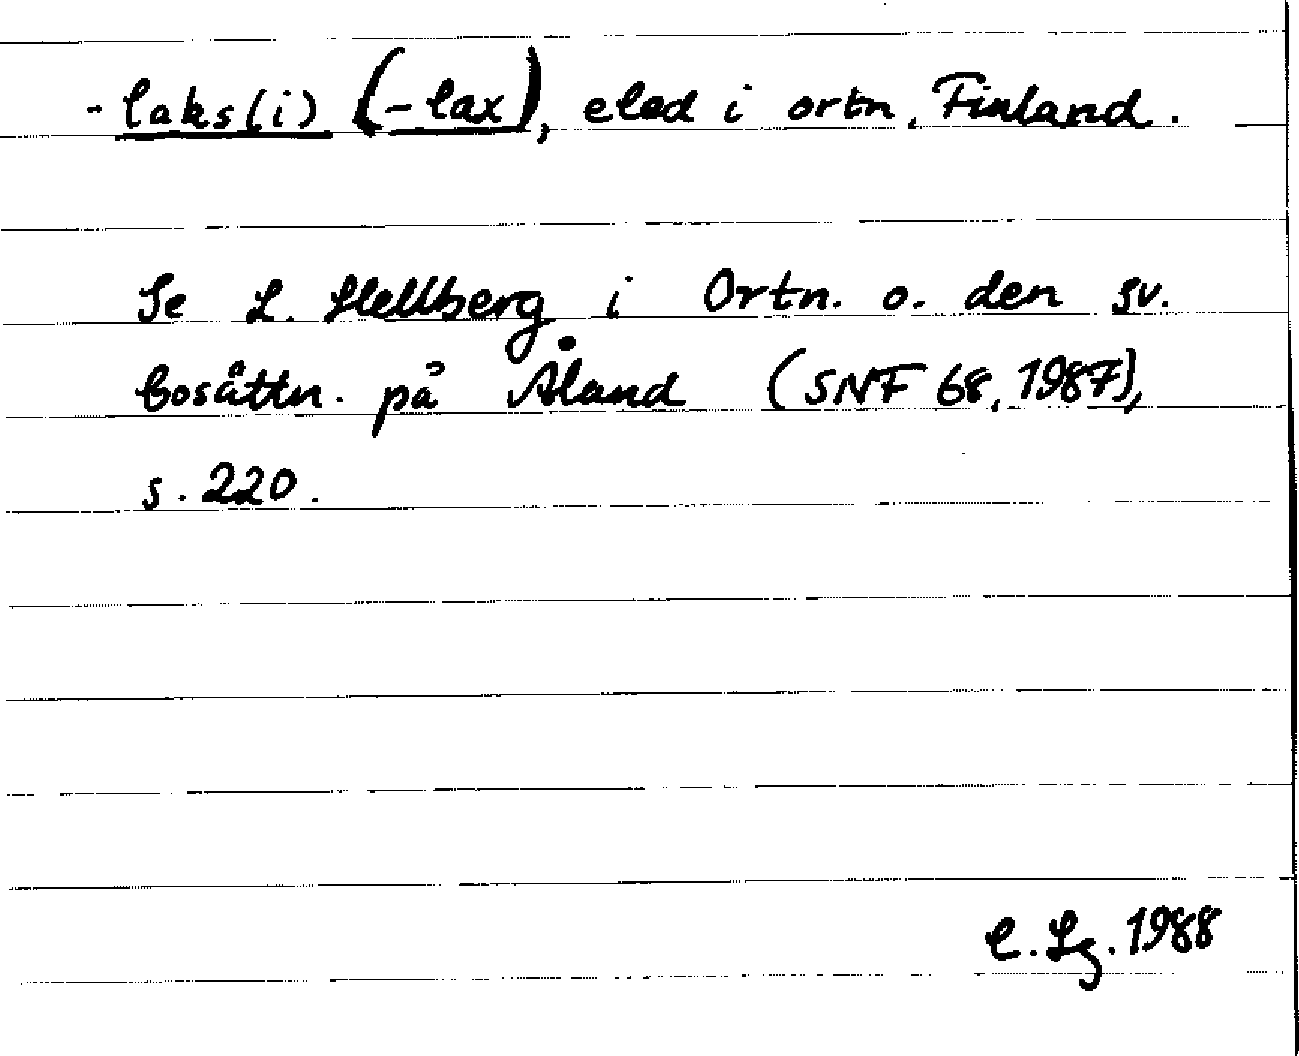 -laks(i) (-lax), eled i ortn. Finland.
Se L. Hellberg i Ortn. o. den sv.
bosättn. på Åland (SNF 68, 1987),
s. 220.
C. Lg. 1988